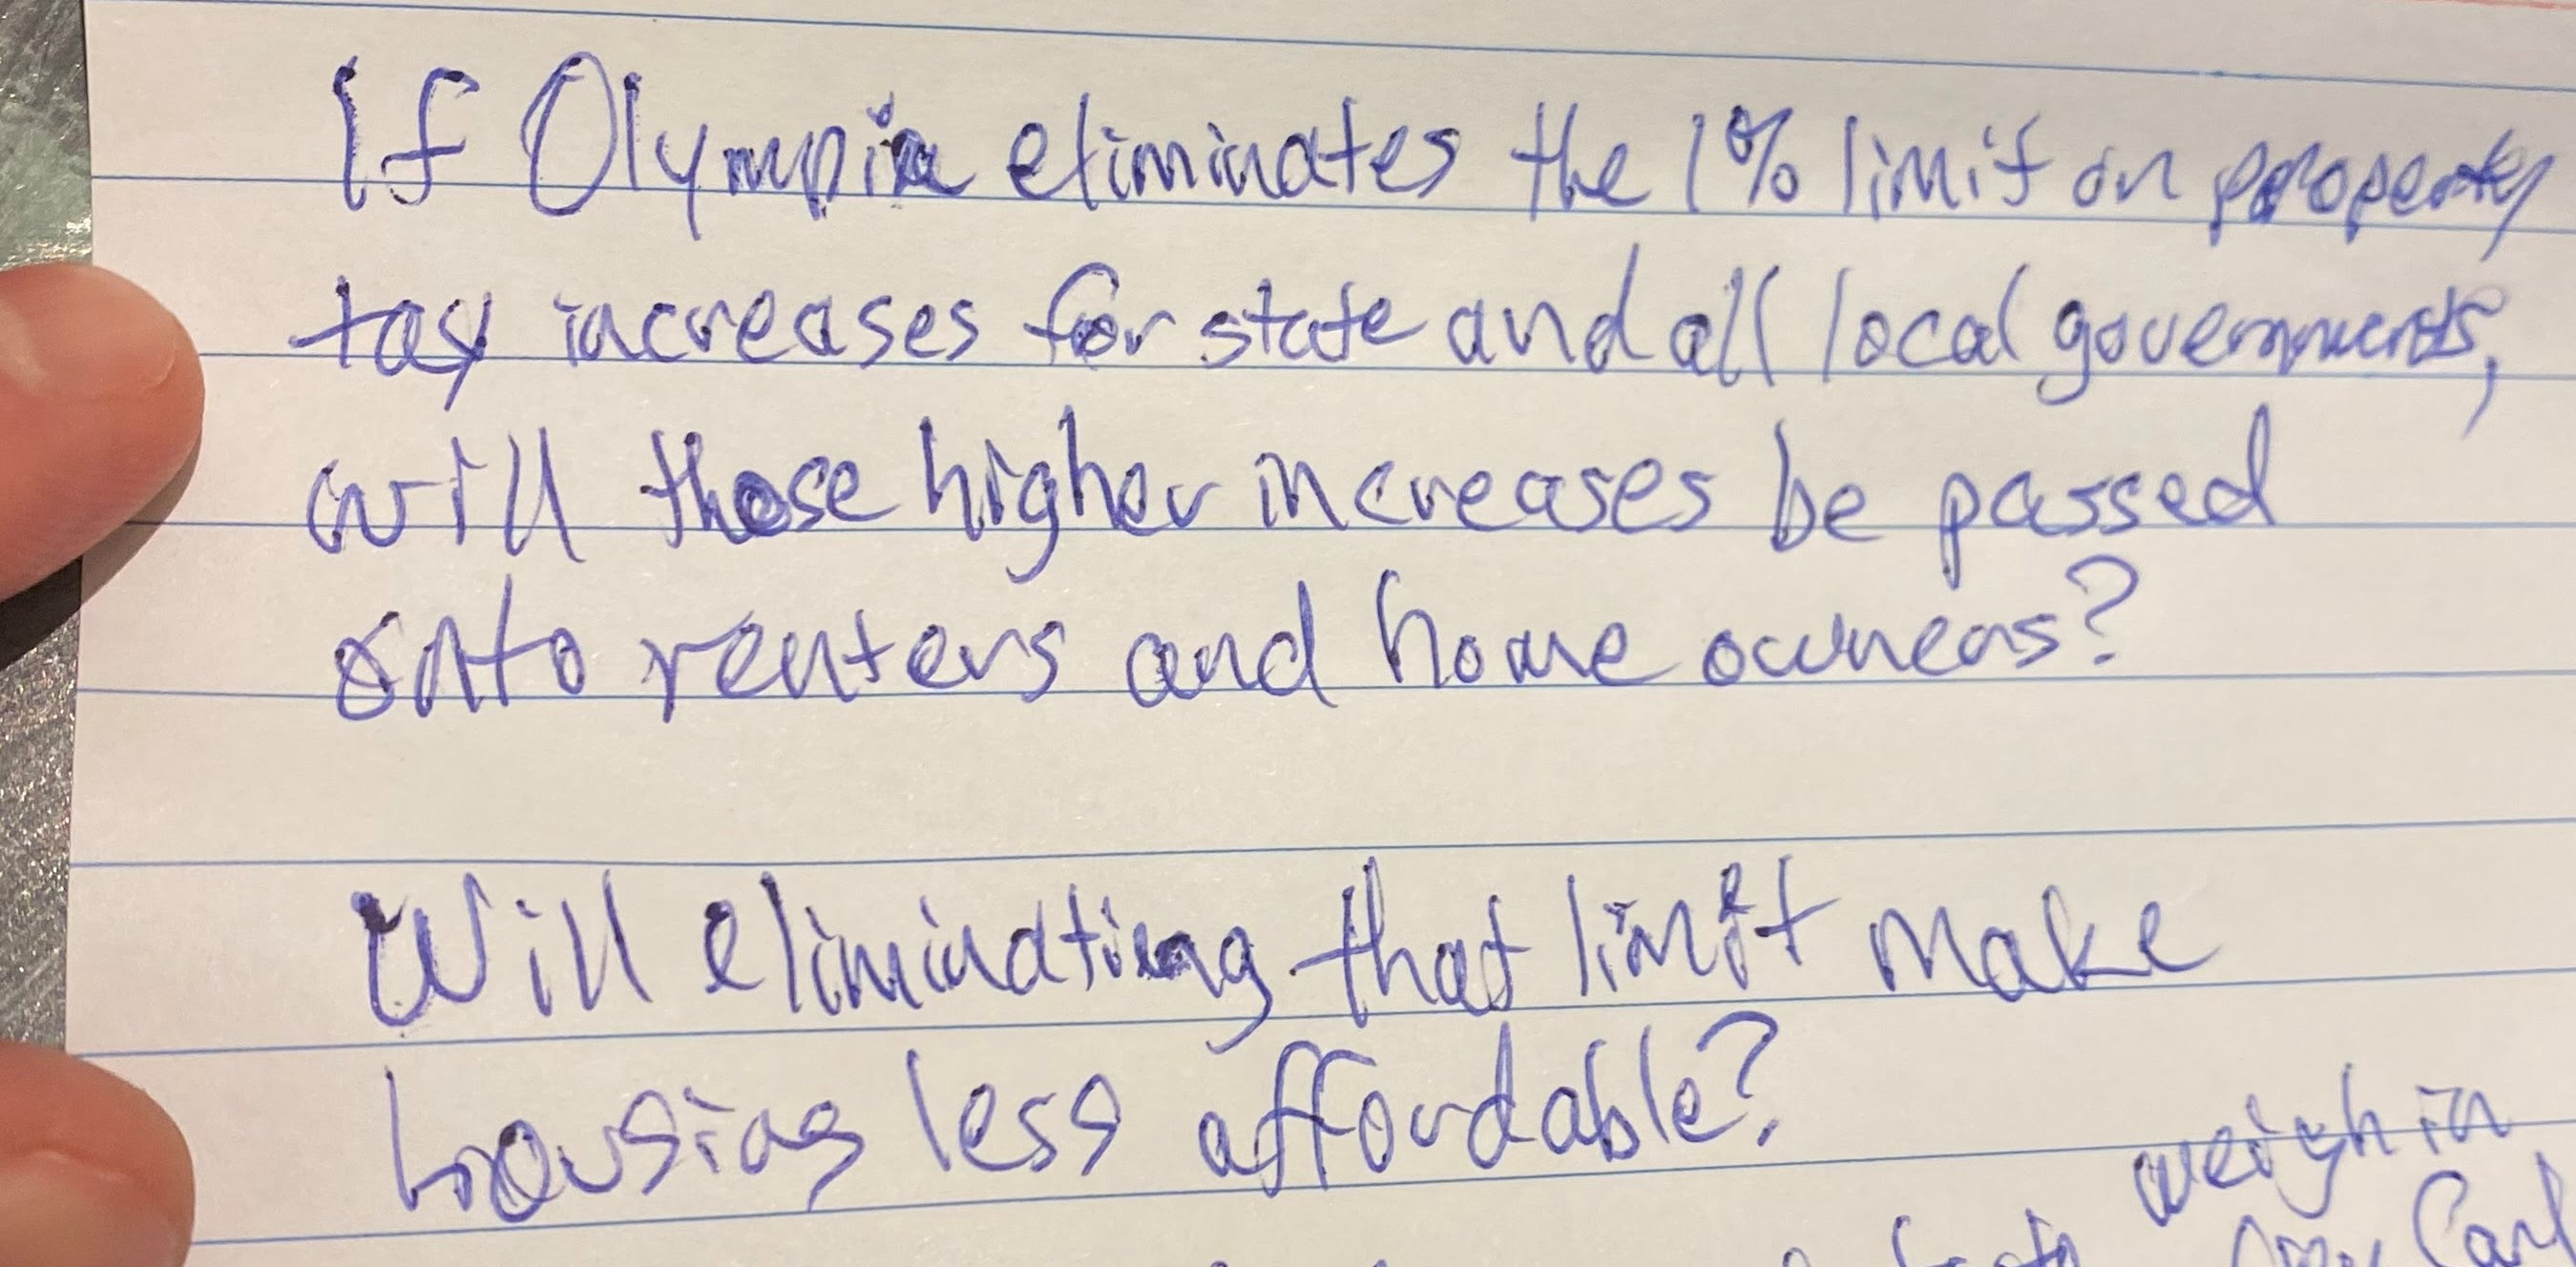 If Olympia eliminates the 1% limit on property
tax increases for state and all local governments,
will those higher increases be passed
onto renters and home owners?
Will eliminating that limit make
housing less affordable?
weigh in
Carl